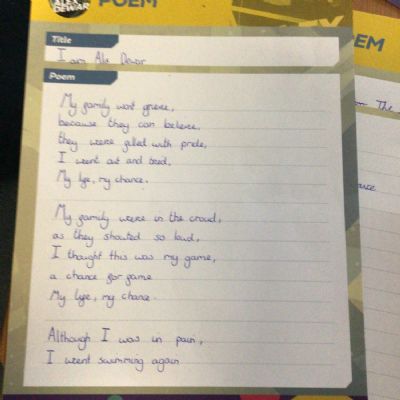 ALEX
DEWAR
POEM
Title
I am Alex Dewar
Poem
My family wont grieve,
because they can believe,
they were filled with pride,
I went out and tried,
My life, my chance.
My family were in the croud,
as they shouted so loud,
I thought this was my game,
a chance for fame
My life, my chance.
Although I was in pain,
I went swimming again
EM
The